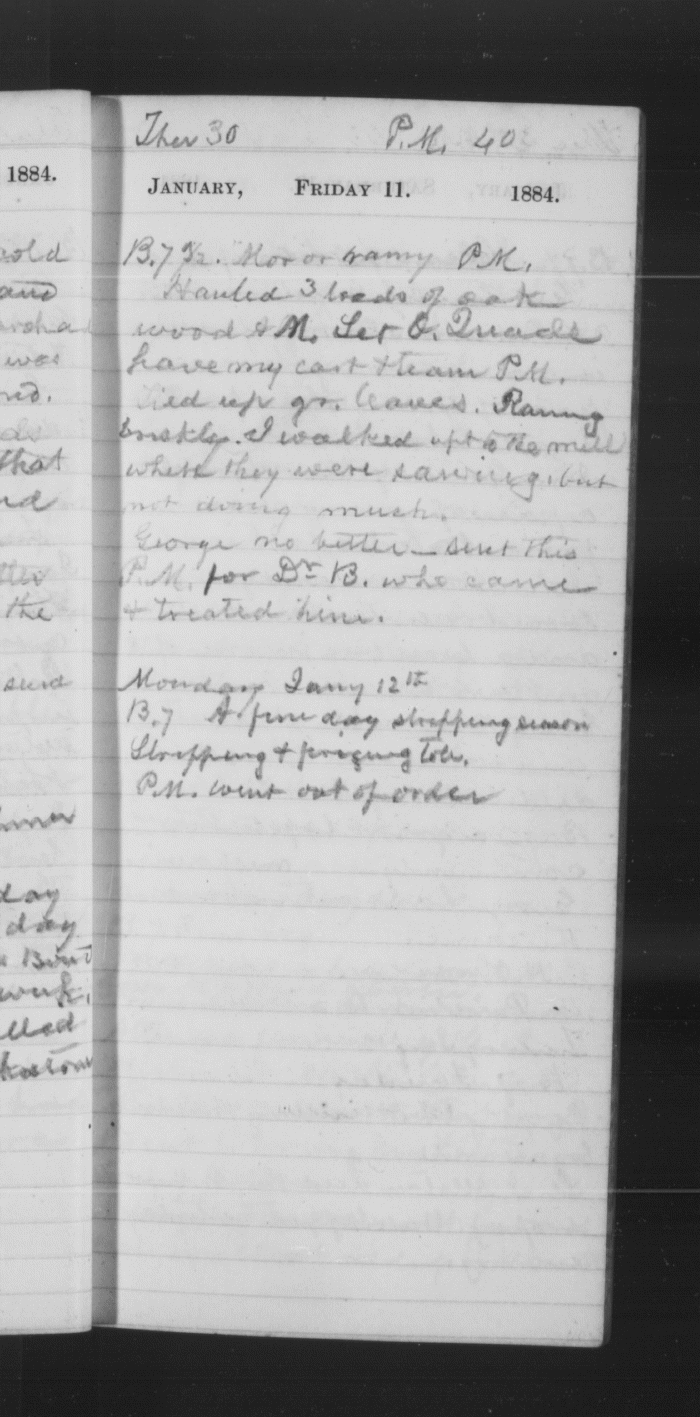 1884.
old
and
was
nd.
that
nd
the
send
day
day
lled
Ther 30 P.M. 40
JANUARY, FRIDAY 11. 1884.
B. 7 ½. Mor or rainy P.M.
Hauled 3 loads of oak
wood A M. Let O. Quade
have my cart & team P.M.
Tied up gr. leaves. Raining
briskly. I walked up to the mill
where they were sawing, but
not doing much.
George no better – sent this
P.M. for Dr B. who came
& treated him.
Monday Jany 12th
B. 7 A fine day stripping season
Stripping & prizing tob.
P.M. went out of order